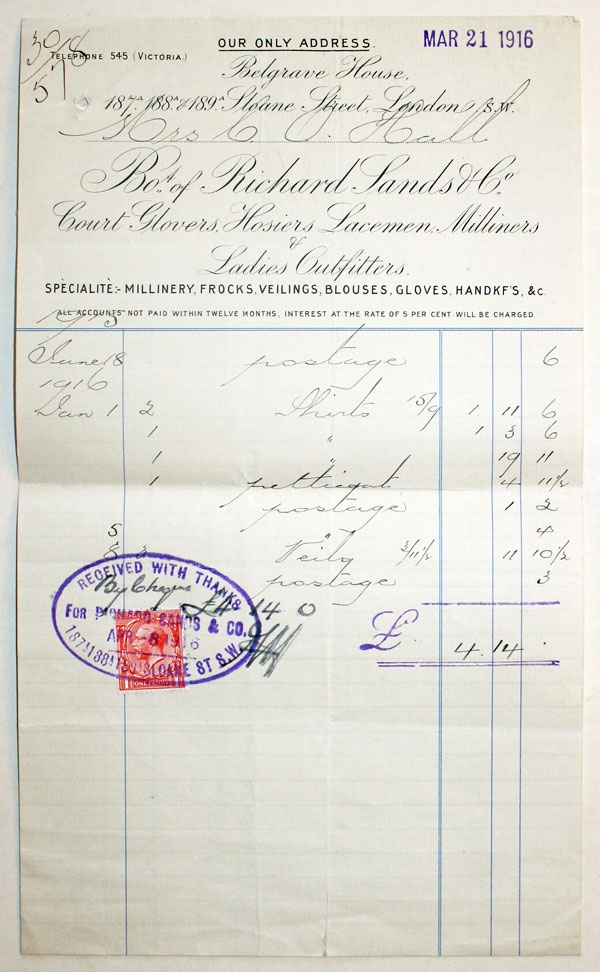 OUR ONLY ADDRESS.
MAR 21 1916
TELEPHONE 545 (VICTORIA.)
Belgrave House,
187A 188A & 189A Sloane Street, London S.W.
Mrs C Hall
Bot. of Richard Sands & Co.
Court Glovers, Hosiers Lacemen, Milliners
&
Ladies Outfitters.
SPÈCIALITÈ:- MILLINERY, FROCKS, VEILINGS, BLOUSES, GLOVES, HANDKF'S, &c.
ALL ACCOUNTS NOT PAID WITHIN TWELVE MONTHS, INTEREST AT THE RATE OF 5 PER CENT WILL BE CHARGED
1915
June 18 postage 6
1916
Jan 1 2 Shirts 15/9 1 11 6
1 " 1 3 6
1 " 19 11
1 petticoat 4 11/2
postage 1 2
5 " 4
3 Veils 3/11/2 11 10/2
postage 3
£ 4.14
RECEIVED WITH THANKS
By Cheque £4 14 0
FOR RICHARD SANDS & CO.
APR -8 1916
187A 188A 189A SLOANE ST S.W.
ONE PENNY